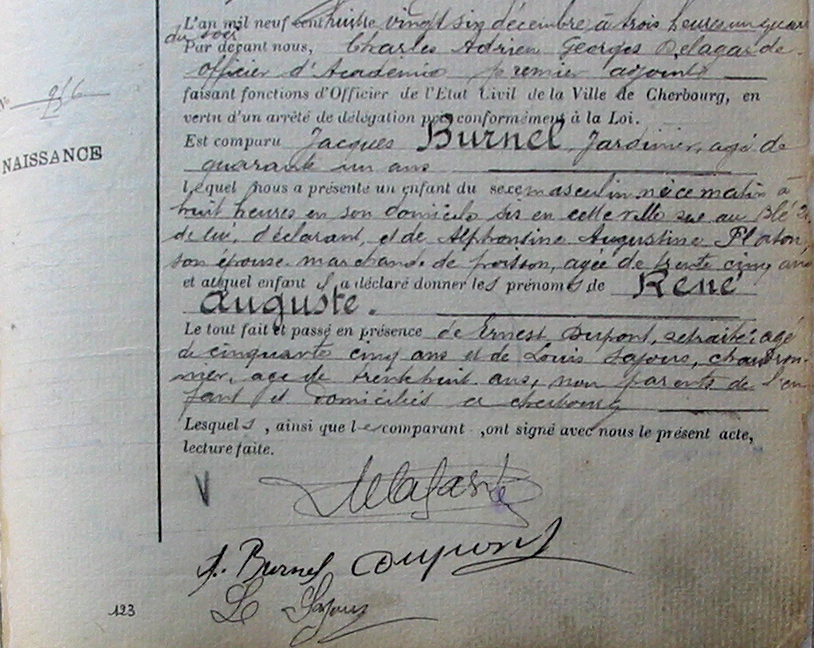 L'an mil neuf cent huit le vingt six décembre à trois heures un quart
du soir
Par devant nous, Charles Adrien Georges Delagarde
officier d'Académie premier adjoint
faisant fonctions d'Officier de l'Etat Civil de la Ville de Cherbourg, en
vertu d'un arrêté de délégation pris conformément à la Loi.
Est comparu Jacques Burnel, Jardinier, agé de
N°
NAISSANCE
quarante un ans
lequel nous a présenté un enfant du sexe masculin, né ce matin à
huit heures en son domicile sis en cette ville rue au Blé
de lui, déclarant, et de Alphonsine Augustine
son épouse marchande de poisson, agée de trente cinq ans
et auquel enfant il a déclaré donner les prénoms de René
Auguste.
Le tout fait et passé en présence de Ernest Dupont, retraité, agé
de cinquante cinq ans et de Louis Lajous, chaudron-
nier, agé de trente huit ans, non parents de l'en
fant et domiciliés à Cherbourg
Lesquels, ainsi que le comparant, ont signé avec nous le présent acte,
lecture faite.
Delagarde
J. Burnel Dupont
123